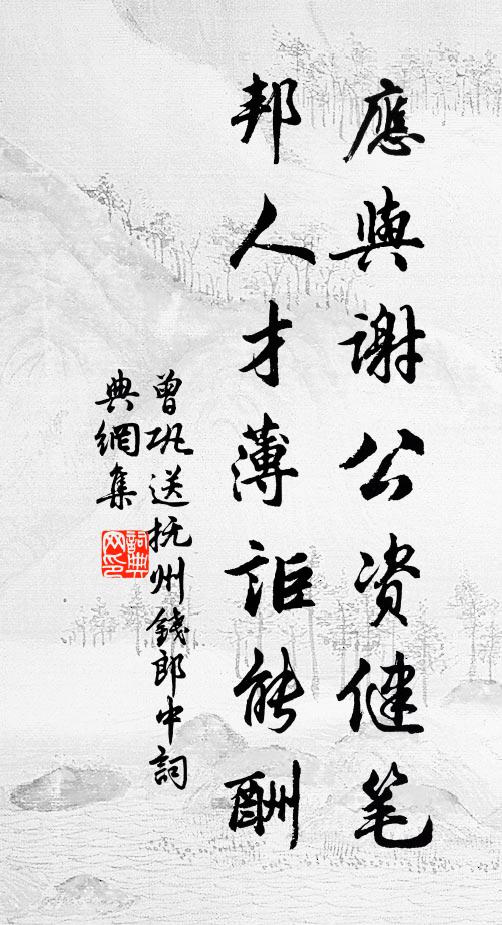 應與謝公資健笔
邦人才薄詎能酬
曾巩送抚州錢郎中詞
典網集
詞典
网印